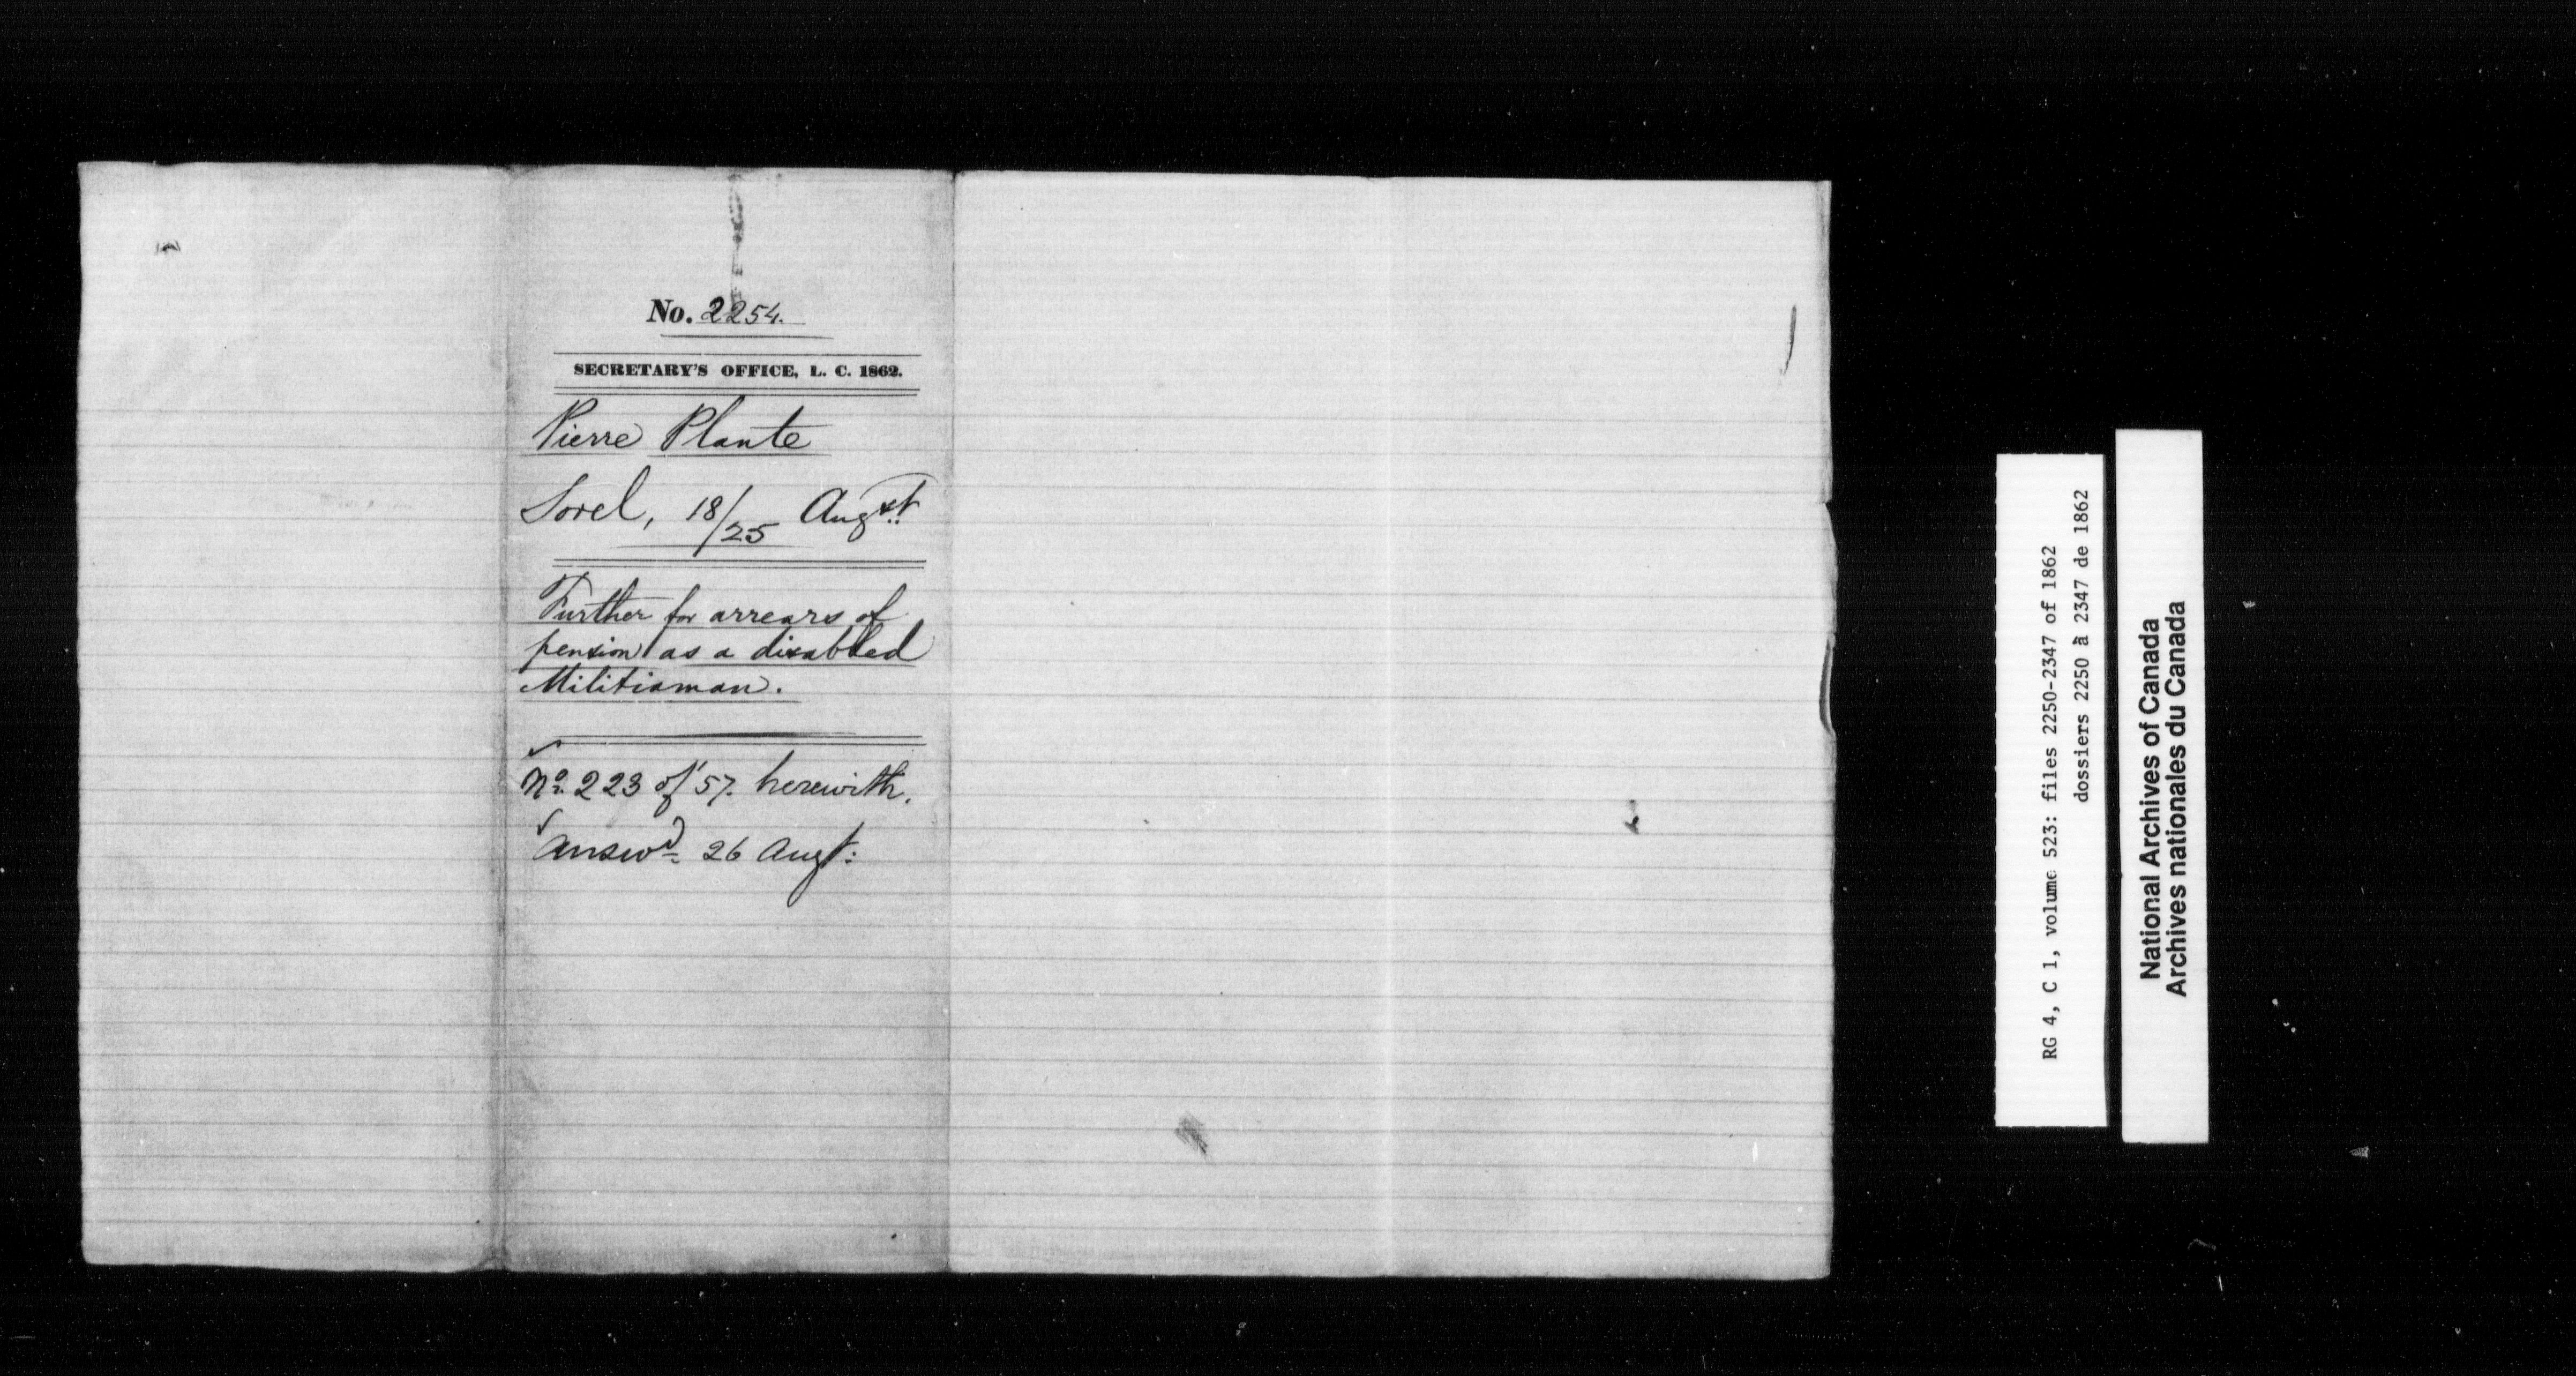 No. 2254.
SECRETARY'S OFFICE, L. C. 1862.
Pierre Plante
Sorel, 18/25 Augst
Further for arrears of
pension as a disabled
Militiaman.
No. 223 of '57. herewith.
Answd. 26 Augt:
RG 4, C 1, volume 523: files 2250-2347 of 1862
dossiers 2250 à 2347 de 1862
National Archives of Canada
Archives nationales du Canada